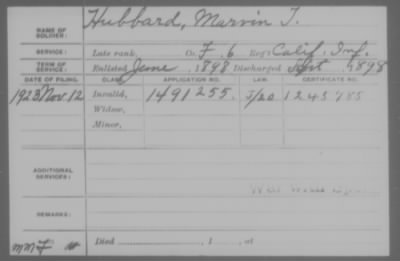 NAME OF SOLDIER: Hubbard, Marvin T.
SERVICE: Late rank, Co. F, 6 Reg't Calif. Inf.
TERM OF SERVICE: Enlisted June, 1898 Discharged Sept, 1898
DATE OF FILING. CLASS. APPLICATION NO. LAW. CERTIFICATE NO.
1923 Nov. 12 Invalid, 1491255. J/20 1243785
Widow,
Minor,
ADDITIONAL SERVICES:
War With
REMARKS:
Died , 1 , at